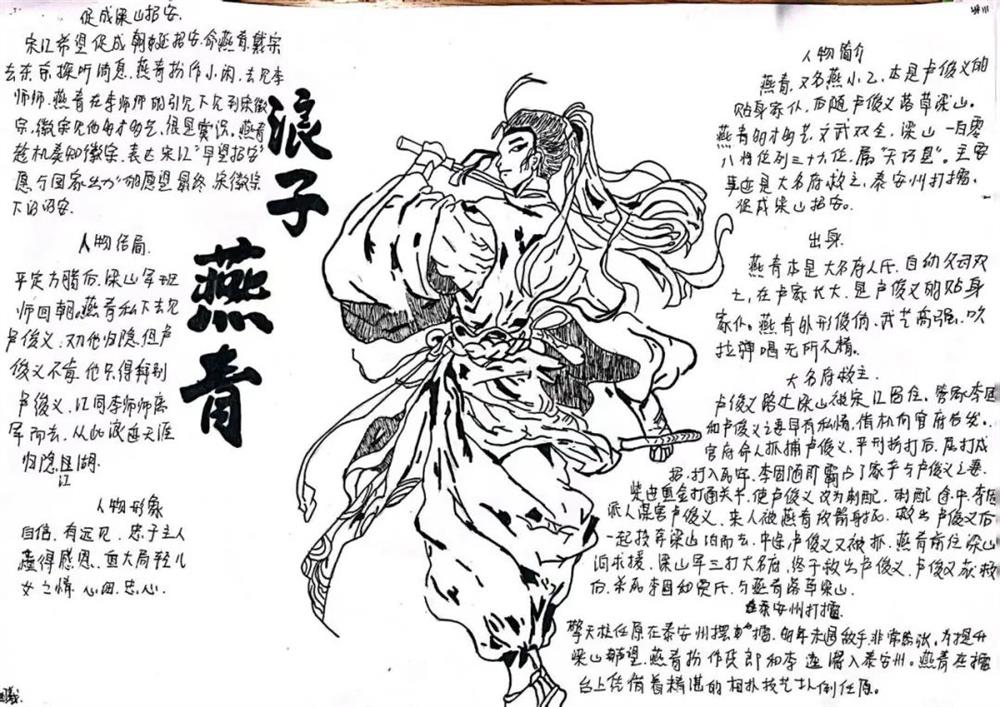 促成梁山招安.
宋江希望促成朝廷招安,命燕青,戴宗
去东京探听消息,燕青扮作小闲,去见李
师师.燕青在李师师的引见下见到宋徽
宗,徽宗见他多才多艺,很是赏识.燕青
趁机奏知徽宗,表达宋江"早望招安"
愿与国家出力"的愿望最终宋徽宗
下诏招安.
人物结局.
平定方腊后,梁山军班
师回朝,燕青私下去见
卢俊义,劝他归隐,但卢
俊义不肯.他只得辞别
卢俊义,江同李师师离
军而去,从此浪迹天涯
归隐且湖.
江
人物形象
自信.有远见.忠于主人
懂得感恩.重大局轻儿
女之情 心细.忠心.
浪子
燕青
人物简介
燕青,又名燕小乙,本是卢俊义的
贴身家仆,后随卢俊义落草梁山.
燕青多才多艺,文武双全,梁山一百零
八将位列三十六位,属"天巧星".主要
事迹是大名府救主,泰安州打擂,
促成梁山招安。
出身.
燕青本是大名府人氏,自幼父母双
亡,在卢家长大,是卢俊义的贴身
家仆。燕青外形俊俏,武艺高强,吹
拉弹唱无所不精。
大名府救主.
卢俊义路过梁山被宋江留住。管家李固
和卢俊义之妻早有私情,借机向官府告发.
官府命人抓捕卢俊义,平刑拷打后,屈打成
招,打入死牢,李固随即霸占了家产与卢俊义之妻.
柴进重金打通关节,使卢俊义改为刺配,刺配途中,李固
派人谋害卢俊义,来人被燕青放箭射死,救出卢俊义后
一起投奔梁山泊而去,中途卢俊义又被抓,燕青前往梁山
泊求援,梁山军三打大名府,终于救出卢俊义,卢俊义获救
后,杀死李固和贾氏,与燕青落草梁山.
泰安州打擂.
擎天柱任原在泰安州摆擂,多年未遇敌手,非常嚣张,为提升
梁山声望,燕青扮作货郎和李逵潜入泰安州。燕青在擂
台上凭借着精湛的相扑技艺扑倒任原。